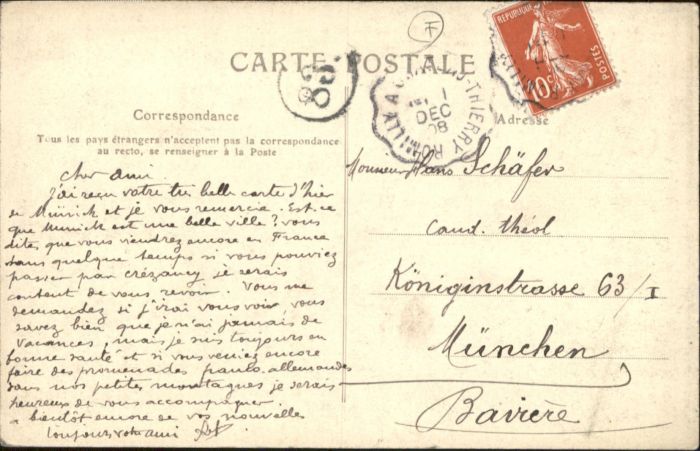 CARTE POSTALE
REPUBLIQUE
10c
POSTES
ROMILLY A CHATEAU-THIERRY
1
DEC
08
Correspondance
Tous les pays étrangers n'acceptent pas la correspondance
au recto, se renseigner à la Poste
Adresse
cher ami.
J'ai reçu votre très belle carte d'hier
de Münick et je vous remercie. Est-ce
que Munick est une belle ville? vous
dites que vous viendrez encore en France
dans quelque temps si vous pouviez
passer par crézancy je serais
content de vous revoir. Vous me
demandez si j'irai vous voir vous
savez bien que je n'ai jamais de
vacances, mais je suis toujours en
bonne santé et si vous veniez encore
faire des promenades franco-allemandes
dans nos petites montagnes je serais
heureux de vous accompagner.
a bientôt encore de vos nouvelles
toujours votre ami
Monsieur Hans Schäfer
Cand. théol
Königinstrasse 63/I
München
Bavière